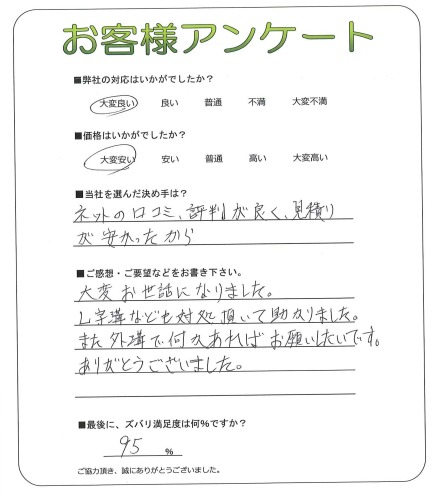 お客様アンケート
■弊社の対応はいかがでしたか？
大変良い 良い 普通 不満 大変不満
■価格はいかがでしたか？
大変安い 安い 普通 高い 大変高い
■当社を選んだ決め手は？
ネットの口コミ、評判が良く、見積り
が安かったから
■ご感想・ご要望などをお書き下さい。
大変お世話になりました。
L字溝なども対処頂いて助かりました。
また外溝で何かあればお願いしたいです。
ありがとうございました。
■最後に、ズバリ満足度は何%ですか？
95 %
ご協力頂き、誠にありがとうございました。